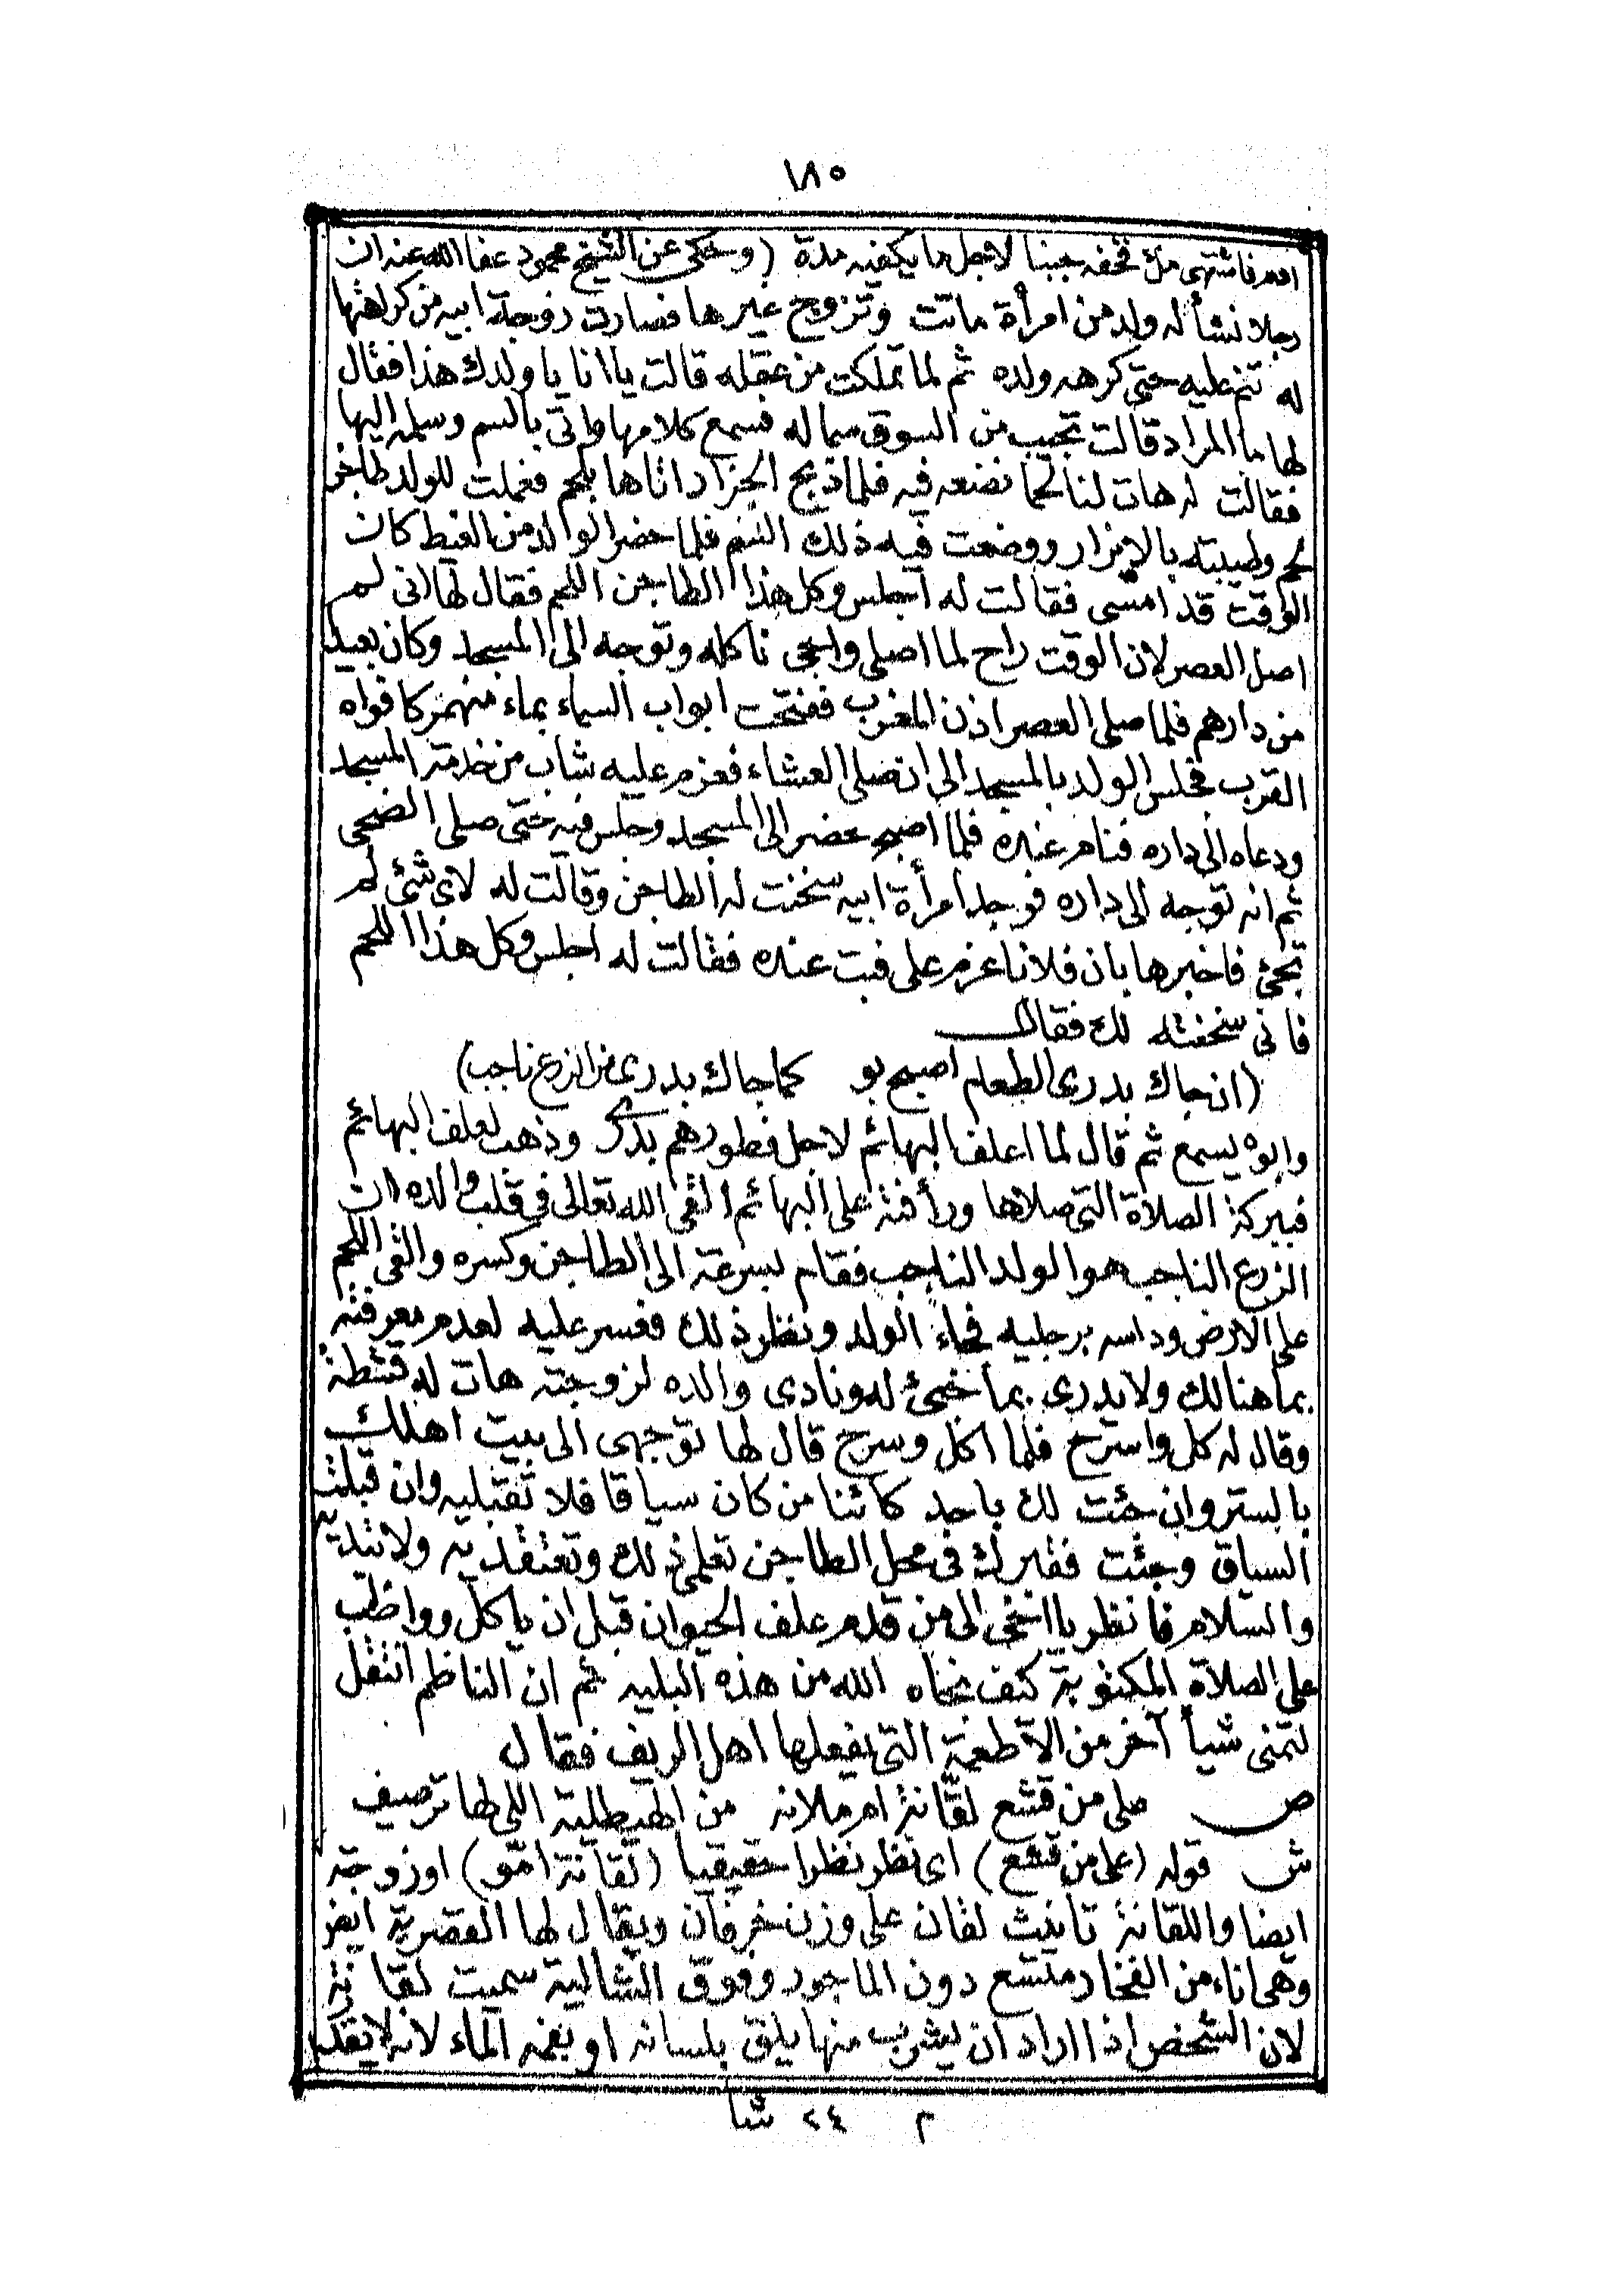 ١٨٥
افهم فاشتهى ملؤ قحفه جبنا لاجل ما يكفيه مدة (وحكى عن الشيخ محمود عفا الله عنه ان
رجلا نشأ له ولد من امرأة ماتت وتزوج غيرها فصارت زوجة ابيه من كراهتها
له تنم عليه حتى كره ولده ثم لما تملكت من عقله قالت يا انا يا ولدك هذا فقال
لها ما المراد قالت تجيب من السوق سما له فسمع كلامها واتى بالسم وسلمه اليها
فقالت له هات لنا لحما نضعه فيه فلما ذبح الجزار اتاها بلحم فعملت للولد طاجن
لحم وطيبته بالابزار ووضعت فيه ذلك السم فلما حضر الولد من الغيط كان
الوقت قد امسى فقالت له اجلس وكل هذا الطاجن اللحم فقال لها انى لم
اصل العصر لان الوقت راح لما اصلى واجى ناكله وتوجه الى المسجد وكان بعيد
من دارهم فلما صلى العصر اذن المغرب ففتحت ابواب السماء بماء منهمر كافواه
القرب فجلس الولد بالمسجد الى ان صلى العشاء فعزم عليه شاب من خدمة المسجد
ودعاه الى داره فنام عنده فلما اصبح حضر الى المسجد وجلس فيه حتى صلى الضحى
ثم انه توجه الى داره فوجد امرأة ابيه سخنت له الطاجن وقالت له لاى شئ لم
تجئ فاخبرها بان فلانا عزم على فبت عنده فقالت له اجلس وكل هذا اللحم
فانى سخنته لك فقال
(ان جاك بدرى الطعام اصبح بو كما جاك بدرى من الزرع ناجب)
وابوه يسمع ثم قال لما اعلف البهائم لاجل فطورهم بدرى وذهب لعلف البهائم
فببركة الصلاة التى صلاها ورأفته على البهائم القى الله تعالى فى قلب والده ان
الزرع الناجب هو الولد الناجب فقام بسرعة الى الطاجن وكسره والقى اللحم
على الارض وداسه برجليه فجاء الولد ونظر ذلك فعسر عليه لعدم معرفته
بما هنالك ولا يدرى بما خبئ له ونادى والده لزوجته هات له قشطة
وقال له كل واسرح فلما اكل وسرح قال لها توجهى الى بيت اهلك
بالستر وان جئت لك باحد كائنا من كان سياقا فلا تقبليه وان قبلت
السياق وجئت فقبرك فى محل الطاجن تعلمى ذلك وتعتقديه ولا تبديه
والسلام فانظر يا اخى الى من قدم علف الحيوان قبل ان ياكل وواظب
على الصلاة المكتوبة كيف نجاه الله من هذه البليه ثم ان الناظم انتقل
لتمنى شيأ آخر من الاطعمة التى يفعلها اهل الريف فقال
ص على من قشع لقانة امو ملانه من الهيطلية اللى لها ترصيف
ش قوله (على من قشع) اى نظر نظرا حقيقيا (لقانة امو) او زوجته
ايضا واللقانة تانيث لقان على وزن خرفان ويقال لها القصرية ايضا
وهى اناء من الفخار متسع دون الماجور وفوق الشالية سميت لقانة
لان الشخص اذا اراد ان يشرب منها يلق بلسانه او بفمه الماء لانه لا يقدر
م ٢٤ شا